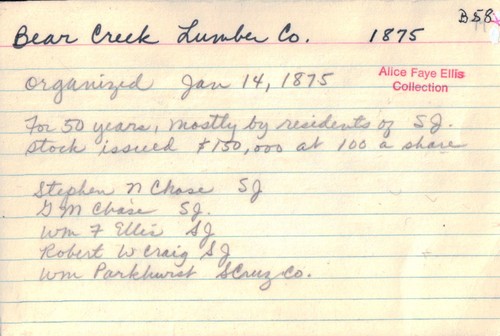 B58
Bear Creek Lumber Co. 1875
Organized Jan 14, 1875
Alice Faye Ellis
Collection
For 50 years, mostly by residents of SJ.
Stock issued $150,000 at 100 a share
Stephen N Chase SJ
G M Chase SJ.
Wm F Ellis SJ
Robert W Craig SJ
Wm Parkhurst SCruz Co.